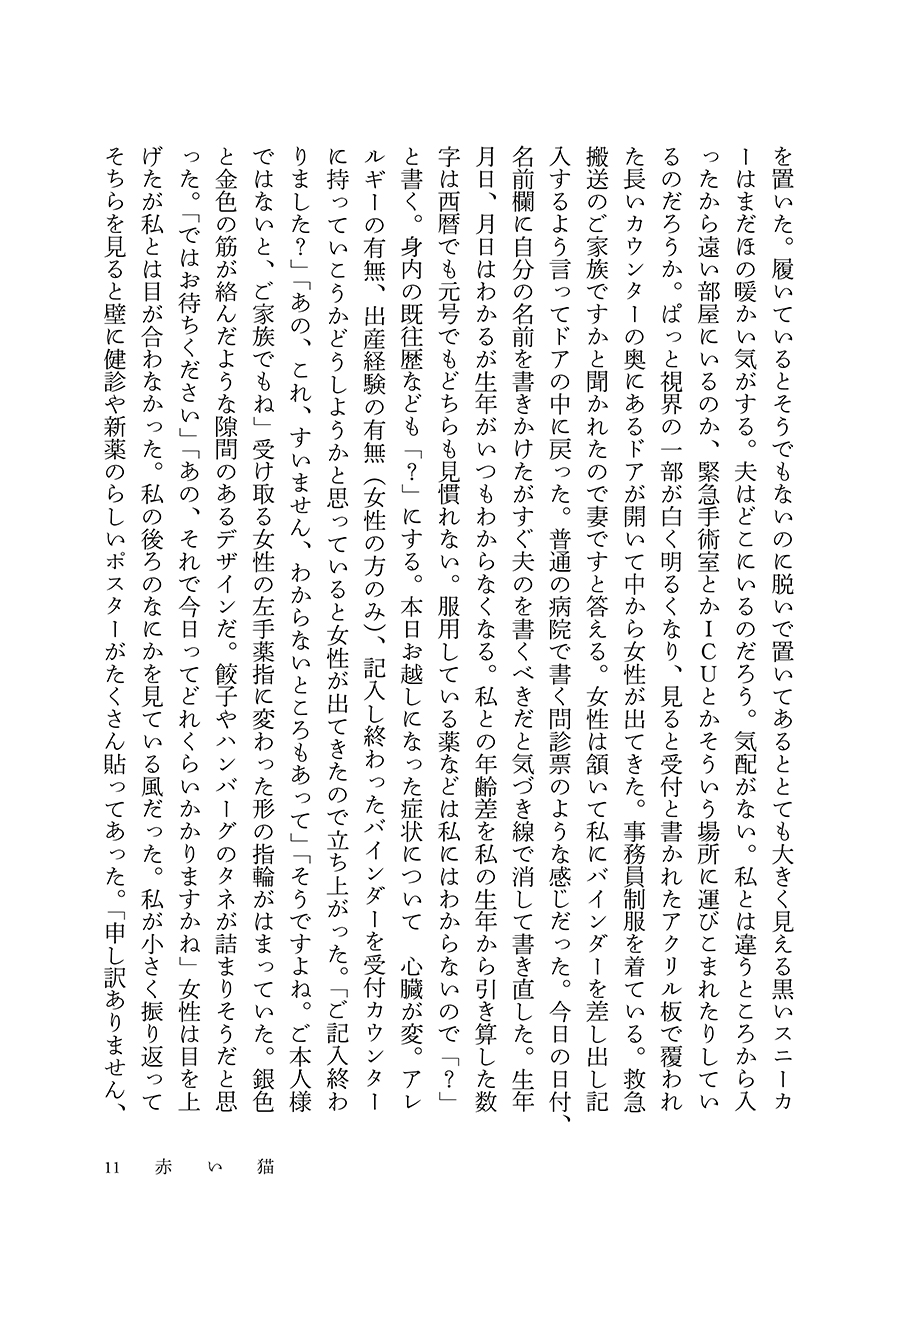 を置いた。履いているとそうでもないのに脱いで置いてあるととても大きく見える黒いスニーカ
ーはまだほの暖かい気がする。夫はどこにいるのだろう。気配がない。私とは違うところから入
ったから遠い部屋にいるのか、緊急手術室とかＩＣＵとかそういう場所に運びこまれたりしてい
るのだろうか。ぱっと視界の一部が白く明るくなり、見ると受付と書かれたアクリル板で覆われ
た長いカウンターの奥にあるドアが開いて中から女性が出てきた。事務員制服を着ている。救急
搬送のご家族ですかと聞かれたので妻ですと答える。女性は頷いて私にバインダーを差し出し記
入するよう言ってドアの中に戻った。普通の病院で書く問診票のような感じだった。今日の日付、
名前欄に自分の名前を書きかけたがすぐ夫のを書くべきだと気づき線で消して書き直した。生年
月日、月日はわかるが生年がいつもわからなくなる。私との年齢差を私の生年から引き算した数
字は西暦でも元号でもどちらも見慣れない。服用している薬などは私にはわからないので「？」
と書く。身内の既往歴なども「？」にする。本日お越しになった症状について　心臓が変。アレ
ルギーの有無、出産経験の有無（女性の方のみ）、記入し終わったバインダーを受付カウンター
に持っていこうかどうしようかと思っていると女性が出てきたので立ち上がった。「ご記入終わ
りました？」「あの、これ、すいません、わからないところもあって」「そうですよね。ご本人様
ではないと、ご家族でもね」受け取る女性の左手薬指に変わった形の指輪がはまっていた。銀色
と金色の筋が絡んだような隙間のあるデザインだ。餃子やハンバーグのタネが詰まりそうだと思
った。「ではお待ちください」「あの、それで今日ってどれくらいかかりますかね」女性は目を上
げたが私とは目が合わなかった。私の後ろのなにかを見ている風だった。私が小さく振り返って
そちらを見ると壁に健診や新薬のらしいポスターがたくさん貼ってあった。「申し訳ありません、
11　赤い猫